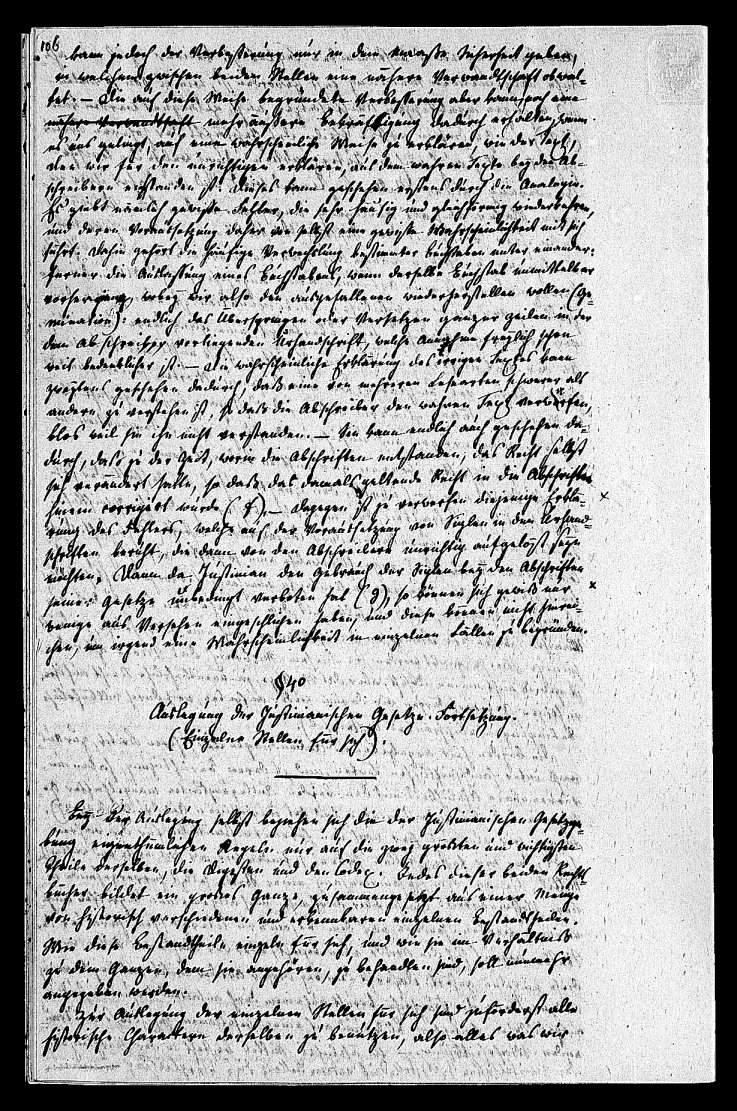 106
kann jedoch der Verbesserung nur in dem Maaße Sicherheit geben,
in welchem zwischen beiden Stellen eine nähere Verwandtschaft obwal-
tet. — Die auf diese Weise begründete Verbesserung aber kann noch eine
nähere Verwandtschaft mehr äußere Bekräftigung dadurch erhalten, wenn
es uns gelingt, auf eine wahrscheinliche Weise zu erklären, wie der Text,
den wir für den unrichtigen erklären, aus dem wahren Texte bey den Ab-
schreibern entstanden ist. Dieses kann geschehen erstens durch die Analogie.
Es giebt nämlich gewisse Fehler, die sehr häufig und gleichförmig wiederkehren,
und deren Voraussetzung daher von selbst eine gewisse Wahrscheinlichkeit mit sich
führt. Dahin gehört die häufige Verwechslung bestimter Buchstaben unter einander:
ferner die Auslassung eines Buchstabens, wenn derselbe Buchstab unmittelbar
vorherging, wobey wir also den ausgefallenen wiederherstellen wollen (Ge-
mination): endlich das Überspringen oder Versetzen ganzer Zeilen in der
dem Abschreiber vorliegenden Urhandschrift, welche Annahme freylich schon
weit bedenklicher ist. — Die wahrscheinliche Erklärung des irrigen Textes kann
zweytens geschehen dadurch, daß eine von mehreren Lesearten schwerer als
andere zu verstehen ist, so daß die Abschreiber den wahren Text verwarfen,
blos weil sie ihn nicht verstanden. — Sie kann endlich auch geschehen da-
durch, daß zu der Zeit, worin die Abschriften entstanden, das Recht selbst
sich verändert hatte, so daß das damals geltende Recht in die Abschriften
hinein corrigirt wurde (f). — Dagegen ist zu verwerfen diejenige Erklä-
rung des Fehlers, welche auf der Voraussetzung von Siglen in den Urhand-
schriften beruht, die dann von den Abschreibern unrichtig aufgelößt seyn
möchten. Denn da Justinian den Gebrauch der Siglen bey den Abschriften
seiner Gesetze unbedingt verboten hat (g), so können sich gewiß nur
wenige aus Versehen eingeschlichen haben, und diese können nicht hinrei-
chen, um irgend eine Wahrscheinlichkeit in einzelnen Fällen zu begründen.
§ 40
Auslegung der Justinianischen Gesetze. Fortsetzung.
(Einzelne Stellen für sich).
Bey der Auslegung selbst beziehen sich die der Justinianischen Gesetzge-
bung eigenthümlichen Regeln nur auf die zwey größten und wichtigsten
Theile derselben, die Digesten und den Codex. Jedes dieser beiden Rechts-
bücher bildet ein großes Ganze, zusammengesetzt aus einer Menge
von historisch verschiedenen und erkennbaren einzelnen Bestandtheilen.
Wie diese Bestandtheile einzeln für sich, und wie sie im Verhältniß
zu dem Ganzen, dem sie angehören, zu behandlen sind, soll nunmehr
angegeben werden.
Zur Auslegung der einzelnen Stellen für sich sind zuförderst alle
historische Charactere derselben zu benutzen, also alles was wir